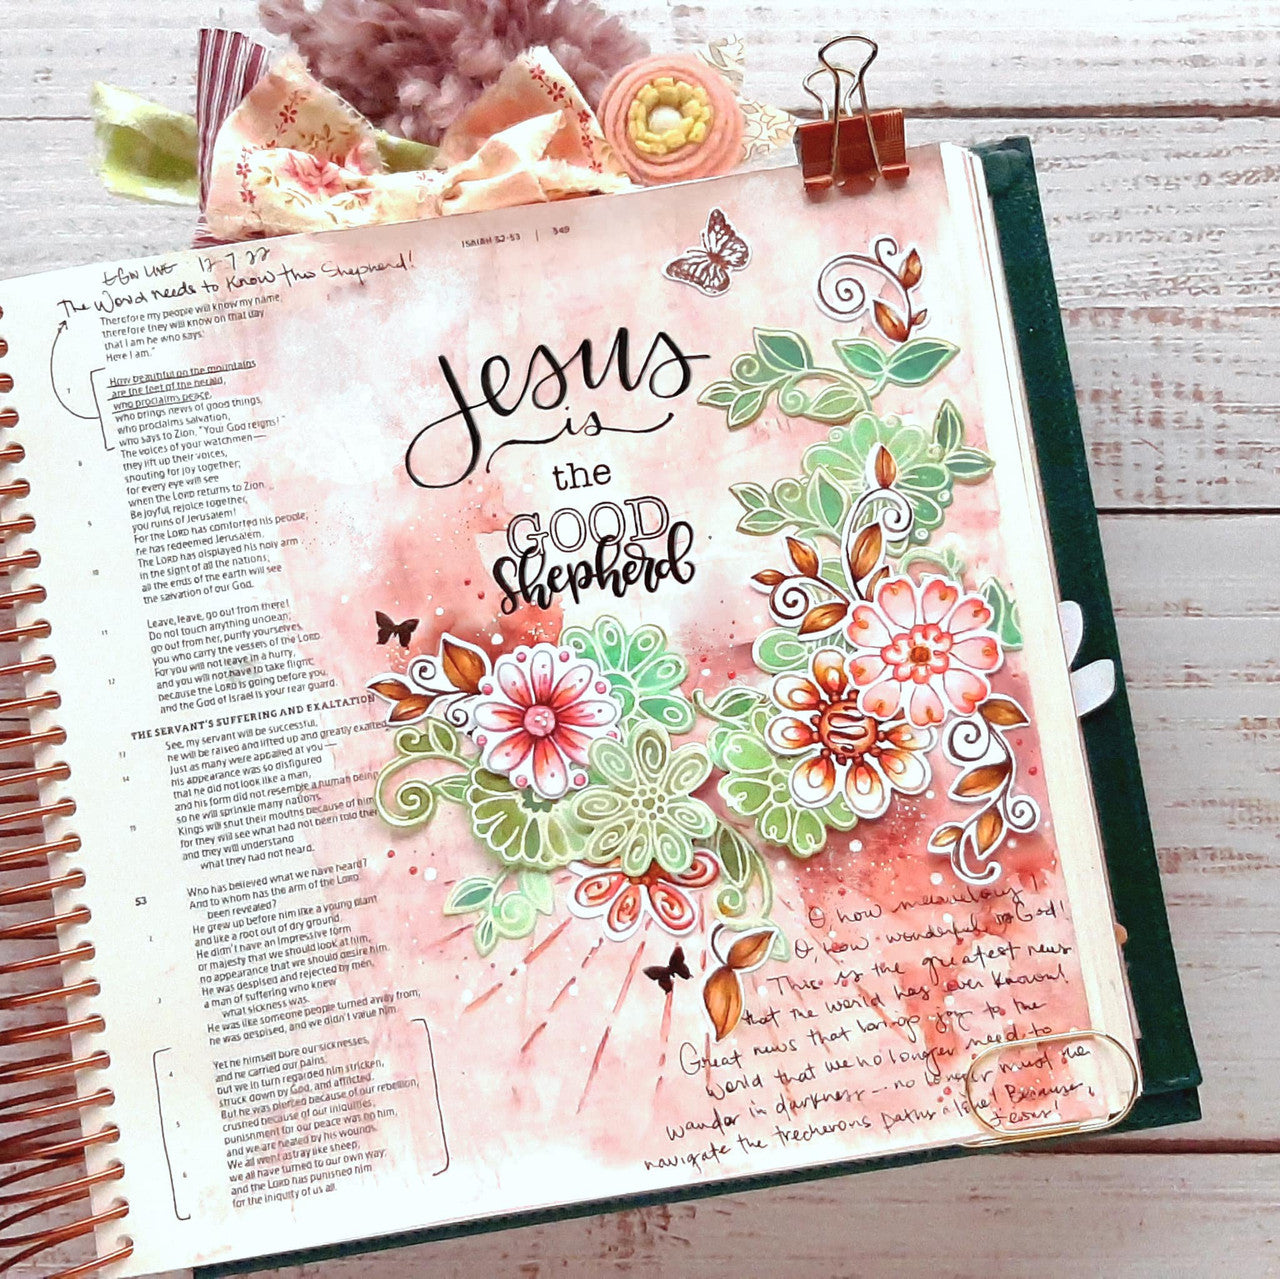 ISAIAH 52-53 | 549
EGW LIVE 12-7-22
The World needs to Know this Shepherd!
Therefore my people will know my name;
therefore they will know on that day
that I am he who says:
Here I am."
7 How beautiful on the mountains
are the feet of the herald,
who proclaims peace,
who brings news of good things,
who proclaims salvation,
who says to Zion, "Your God reigns!"
8 The voices of your watchmen—
they lift up their voices,
shouting for joy together;
for every eye will see
when the LORD returns to Zion.
9 Be joyful, rejoice together,
you ruins of Jerusalem!
For the LORD has comforted his people;
he has redeemed Jerusalem.
10 The LORD has displayed his holy arm
in the sight of all the nations;
all the ends of the earth will see
the salvation of our God.
11 Leave, leave, go out from there!
Do not touch anything unclean;
go out from her, purify yourselves,
you who carry the vessels of the LORD.
12 For you will not leave in a hurry,
and you will not have to take flight;
because the LORD is going before you,
and the God of Israel is your rear guard.
THE SERVANT'S SUFFERING AND EXALTATION
13 See, my servant will be successful;
he will be raised and lifted up and greatly exalted.
14 Just as many were appalled at you—
his appearance was so disfigured
that he did not look like a man,
and his form did not resemble a human being—
15 so he will sprinkle many nations.
Kings will shut their mouths because of him,
for they will see what had not been told them,
and they will understand
what they had not heard.
53 Who has believed what we have heard?
And to whom has the arm of the LORD
been revealed?
2 He grew up before him like a young plant
and like a root out of dry ground.
He didn't have an impressive form
or majesty that we should look at him,
no appearance that we should desire him.
3 He was despised and rejected by men,
a man of suffering who knew
what sickness was.
He was like someone people turned away from;
he was despised, and we didn't value him.
4 Yet he himself bore our sicknesses,
and he carried our pains;
but we in turn regarded him stricken,
struck down by God, and afflicted.
5 But he was pierced because of our rebellion,
crushed because of our iniquities;
punishment for our peace was on him,
and we are healed by his wounds.
6 We all went astray like sheep;
we all have turned to our own way;
and the LORD has punished him
for the iniquity of us all.
Jesus
is
the
GOOD
Shepherd
O how marvelous!
O, how wonderful is God!
This is the greatest news
that the world has ever known!
Great news that brings joy to the
world that we no longer need to
wander in darkness... no longer must we
navigate the trecherous paths alone! Because,
Jesus!